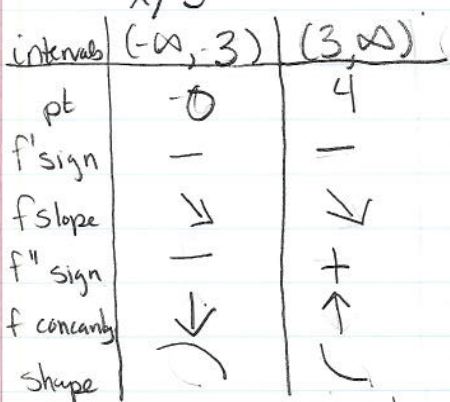 intervals (-∞, -3) (3, ∞)
pt -0 4
f' sign — —
f slope ↘ ↘
f" sign — +
f concavity ↓ ↑
shape